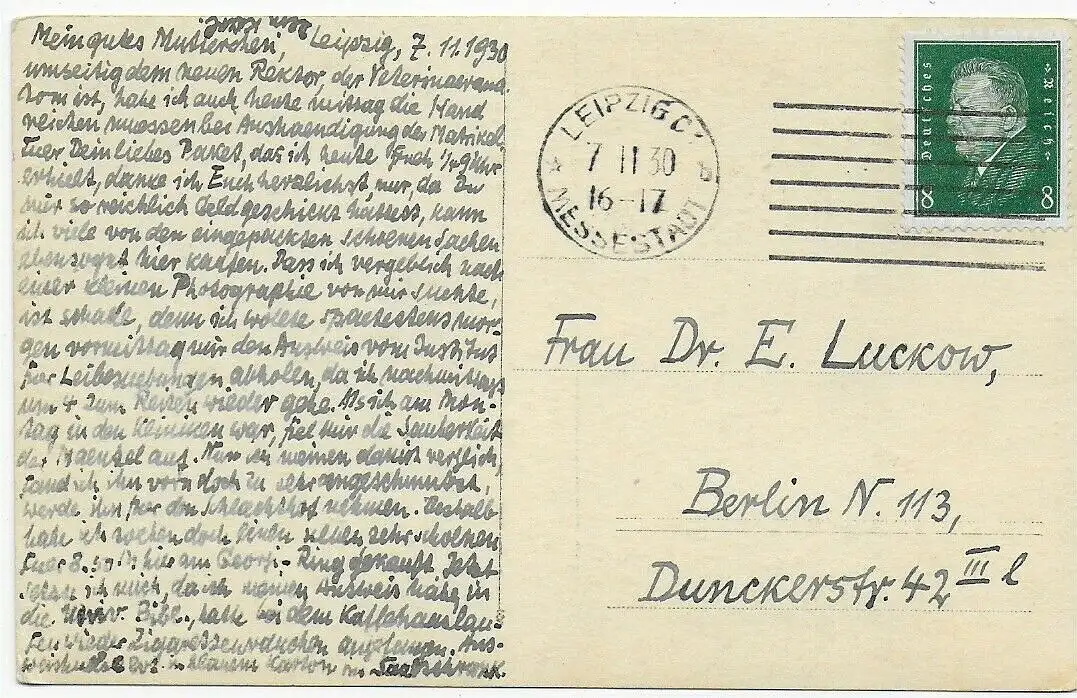 Mein gutes Mutterchen, Leipzig, 7. 11. 1930
umseitig dem neuen Rektor, der Veterinaeranatom
ist, habe ich auch heute mittag die Hand
reichen muessen bei Aushaendigung der Matrikel.
Fuer Dein liebes Paket, das ich heute Frueh 1/4 9 Uhr
erhielt, danke ich Euch herzlichst nur, da Du
mir so reichlich Geld geschickt hattest, kann
ich viele von den eingepackten schoenen Sachen
ebensogut hier kaufen. Dass ich vergeblich nach
einer kleinen Photographie von mir suchte,
ist schade, denn ich wollte spaetestens mor-
gen vormittag mir den Ausweis vom Institut
fuer Leibesuebungen abholen, da ich nachmittags
um 4 zum Reiten wieder gehe. Als ich am Mon-
tag in den Kliniken war, fiel mir die Sauberkeit
der Maentel auf. Nun ich meinen damit verglich
fand ich ihn vorn doch zu sehr angeschmutzt,
werde ihn fuer den Schlachthof nehmen. Deshalb
habe ich soeben doch einen neuen sehr schoenen
fuer 8.50 M hier am Georgi-Ring gekauft. Jetzt
setze ich mich, da ich meinen Ausweis habe, in
die Univ. Bibl., hatte bei dem Kaffeehauslau-
fen wieder Zigarettenrauchen angefangen. Aus-
in blauem Karton im
LEIPZIG C 1
7 11 30
16-17
MESSESTADT
Deutsches Reich
8 8
Frau Dr. E. Luckow,
Berlin N. 113,
Dunckerstr. 42 III l